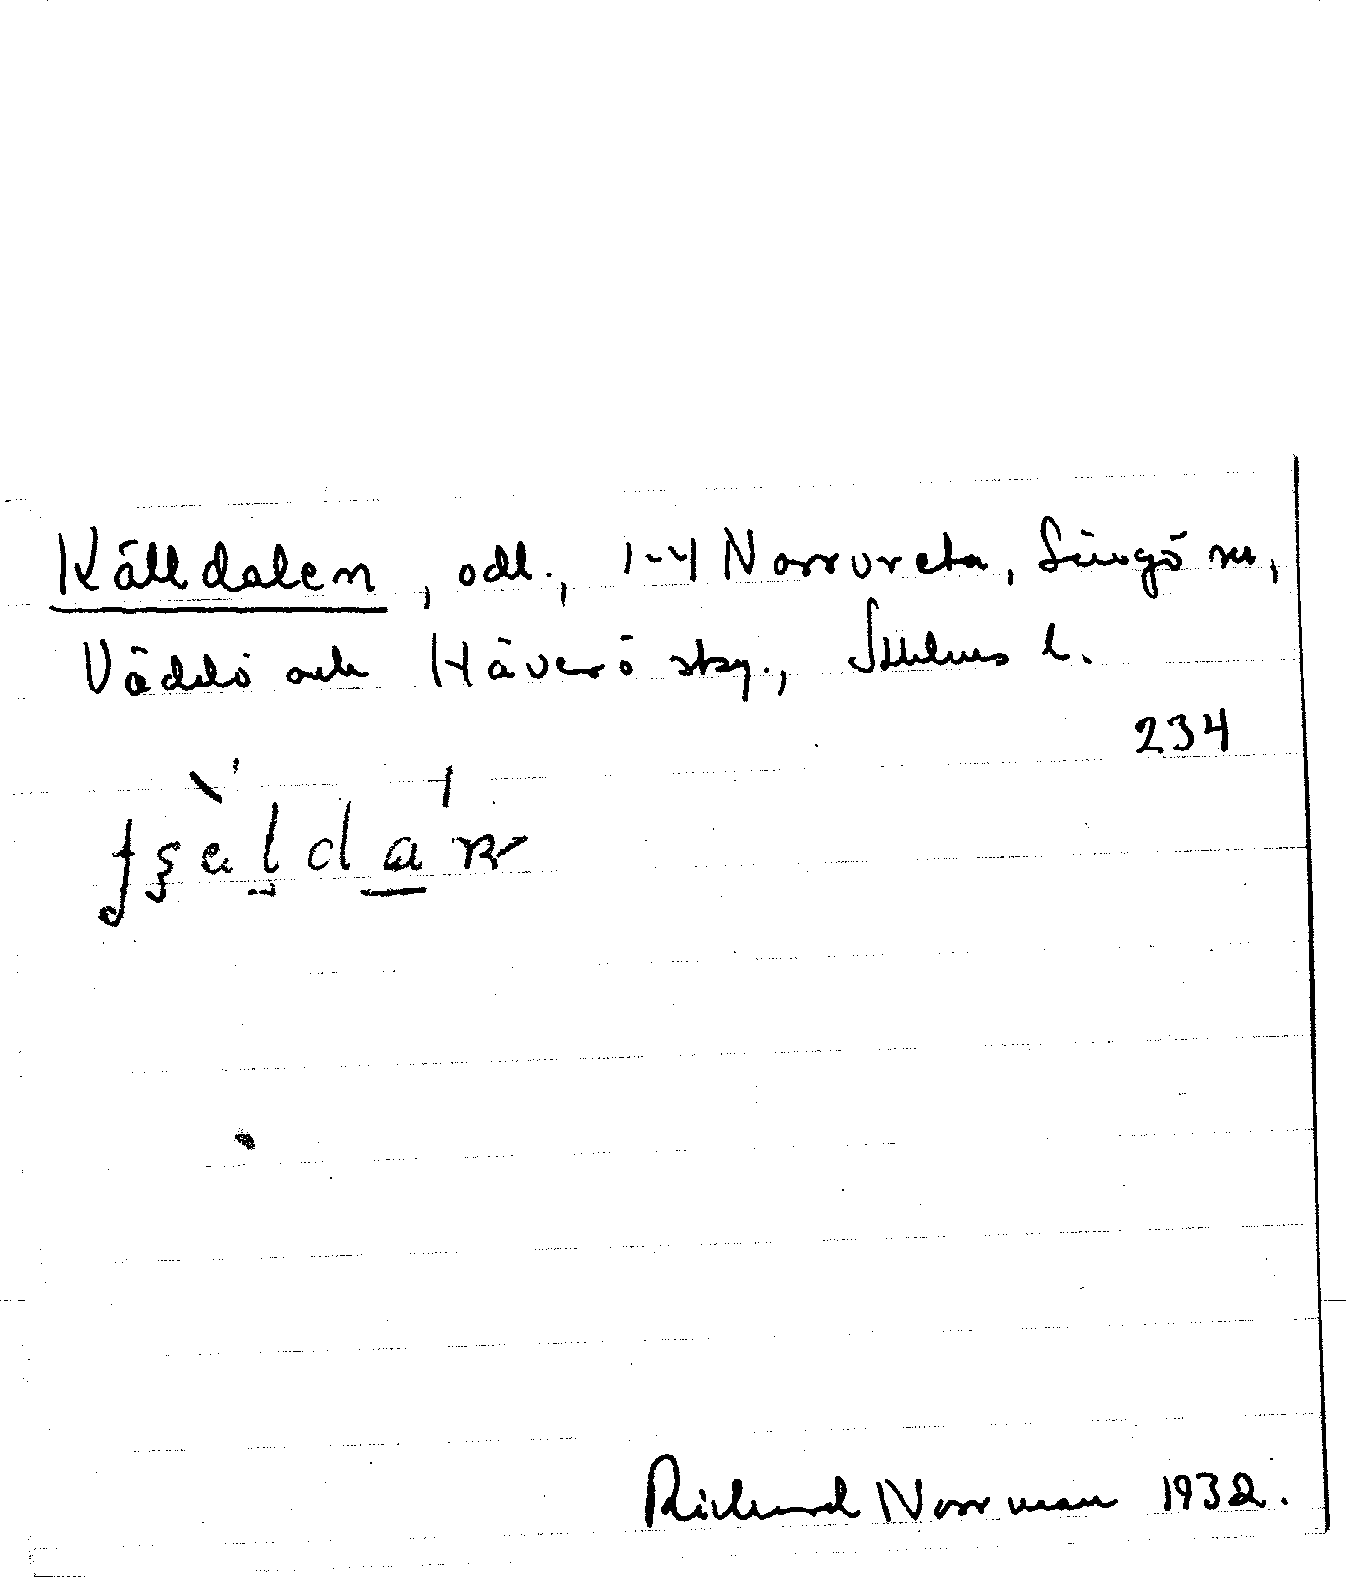 Källdalen, odl., 1-4 Norrvreta, Singö sn,
Väddö och Häverö skg., Sthlms l.
234
Richard Norrman 1932.